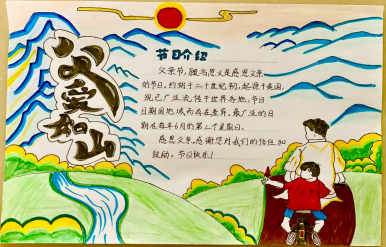 父爱如山
节日介绍
父亲节,顾名思义是感恩父亲
的节日,约始于二十世纪初,起源于美国,
现已广泛流传于世界各地,节日
日期因地域而存在差异,最广泛的日
期在每年6月的第三个星期日。
感恩父亲,感谢您对我们的信任,加
鼓励,节日快乐!